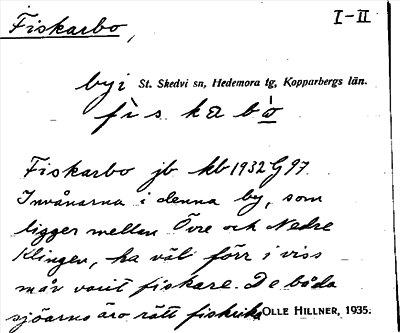 Fiskarbo, I-II
by i St. Skedvi sn, Hedemora tg, Kopparbergs län.
fìskabó
Fiskarbo jb kb 1932 G 97
Invånarna i denna by, som
ligger mellan Övre och Nedre
Klingen, ha väl förr i viss
mån varit fiskare. De båda
sjöarna äro rätt fiskrika OLLE HILLNER, 1935.